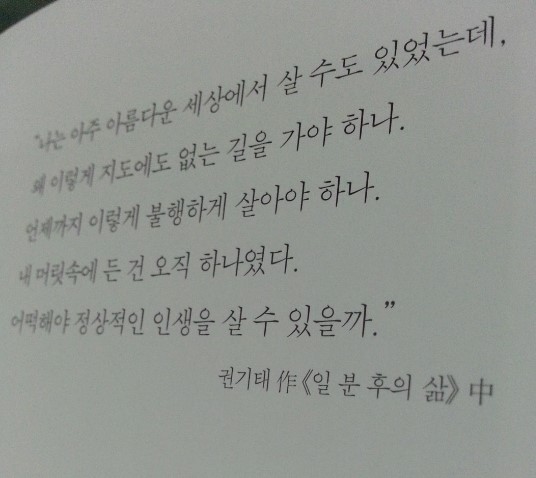 "나는 아주 아름다운 세상에서 살 수도 있었는데,
왜 이렇게 지도에도 없는 길을 가야 하나.
언제까지 이렇게 불행하게 살아야 하나.
내 머릿속에 든 건 오직 하나였다.
어떡해야 정상적인 인생을 살 수 있을까."
권기태 作《일 분 후의 삶》中